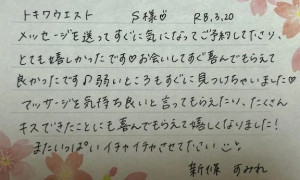 トキワウエスト S様♡ R8.3.20
メッセージを送ってすぐに気になってご予約してたり、
とても嬉しかったです♡お会いしてすぐ喜んでもらえて
良かったです♫弱いところもすぐに見つけちゃいました♡
マッサージを気持ち良いと言ってもらえたり、たくさん
キスできたことにも喜んでもらえて嬉しくなりました!
またいっぱいイチャイチャさせてください
新條 すみれ